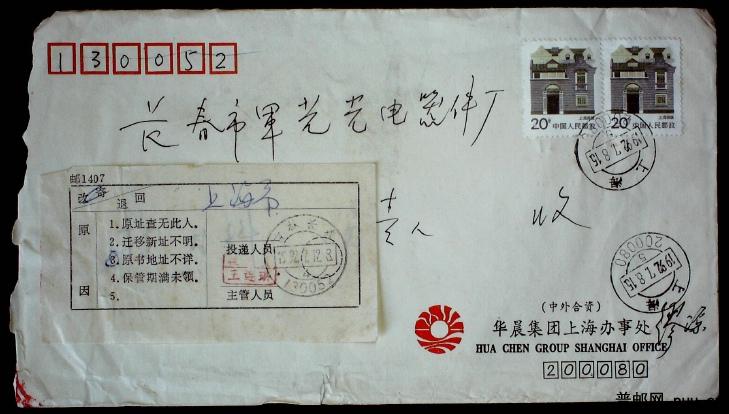 130052
20分 中国人民邮政
20分 中国人民邮政
长春市军光光电器件厂
责人 收
邮1407
改寄
退回 上海市
原因
1.原址查无此人。
2.迁移新址不明。
3.原书地址不详。
4.保管期满未领。
5.
投递人员
主管人员
上海
1992.7.8.15
200080
上海
1992.7.8.15
(中外合资)
华晨集团上海办事处
HUA CHEN GROUP SHANGHAI OFFICE
200080
普邮网